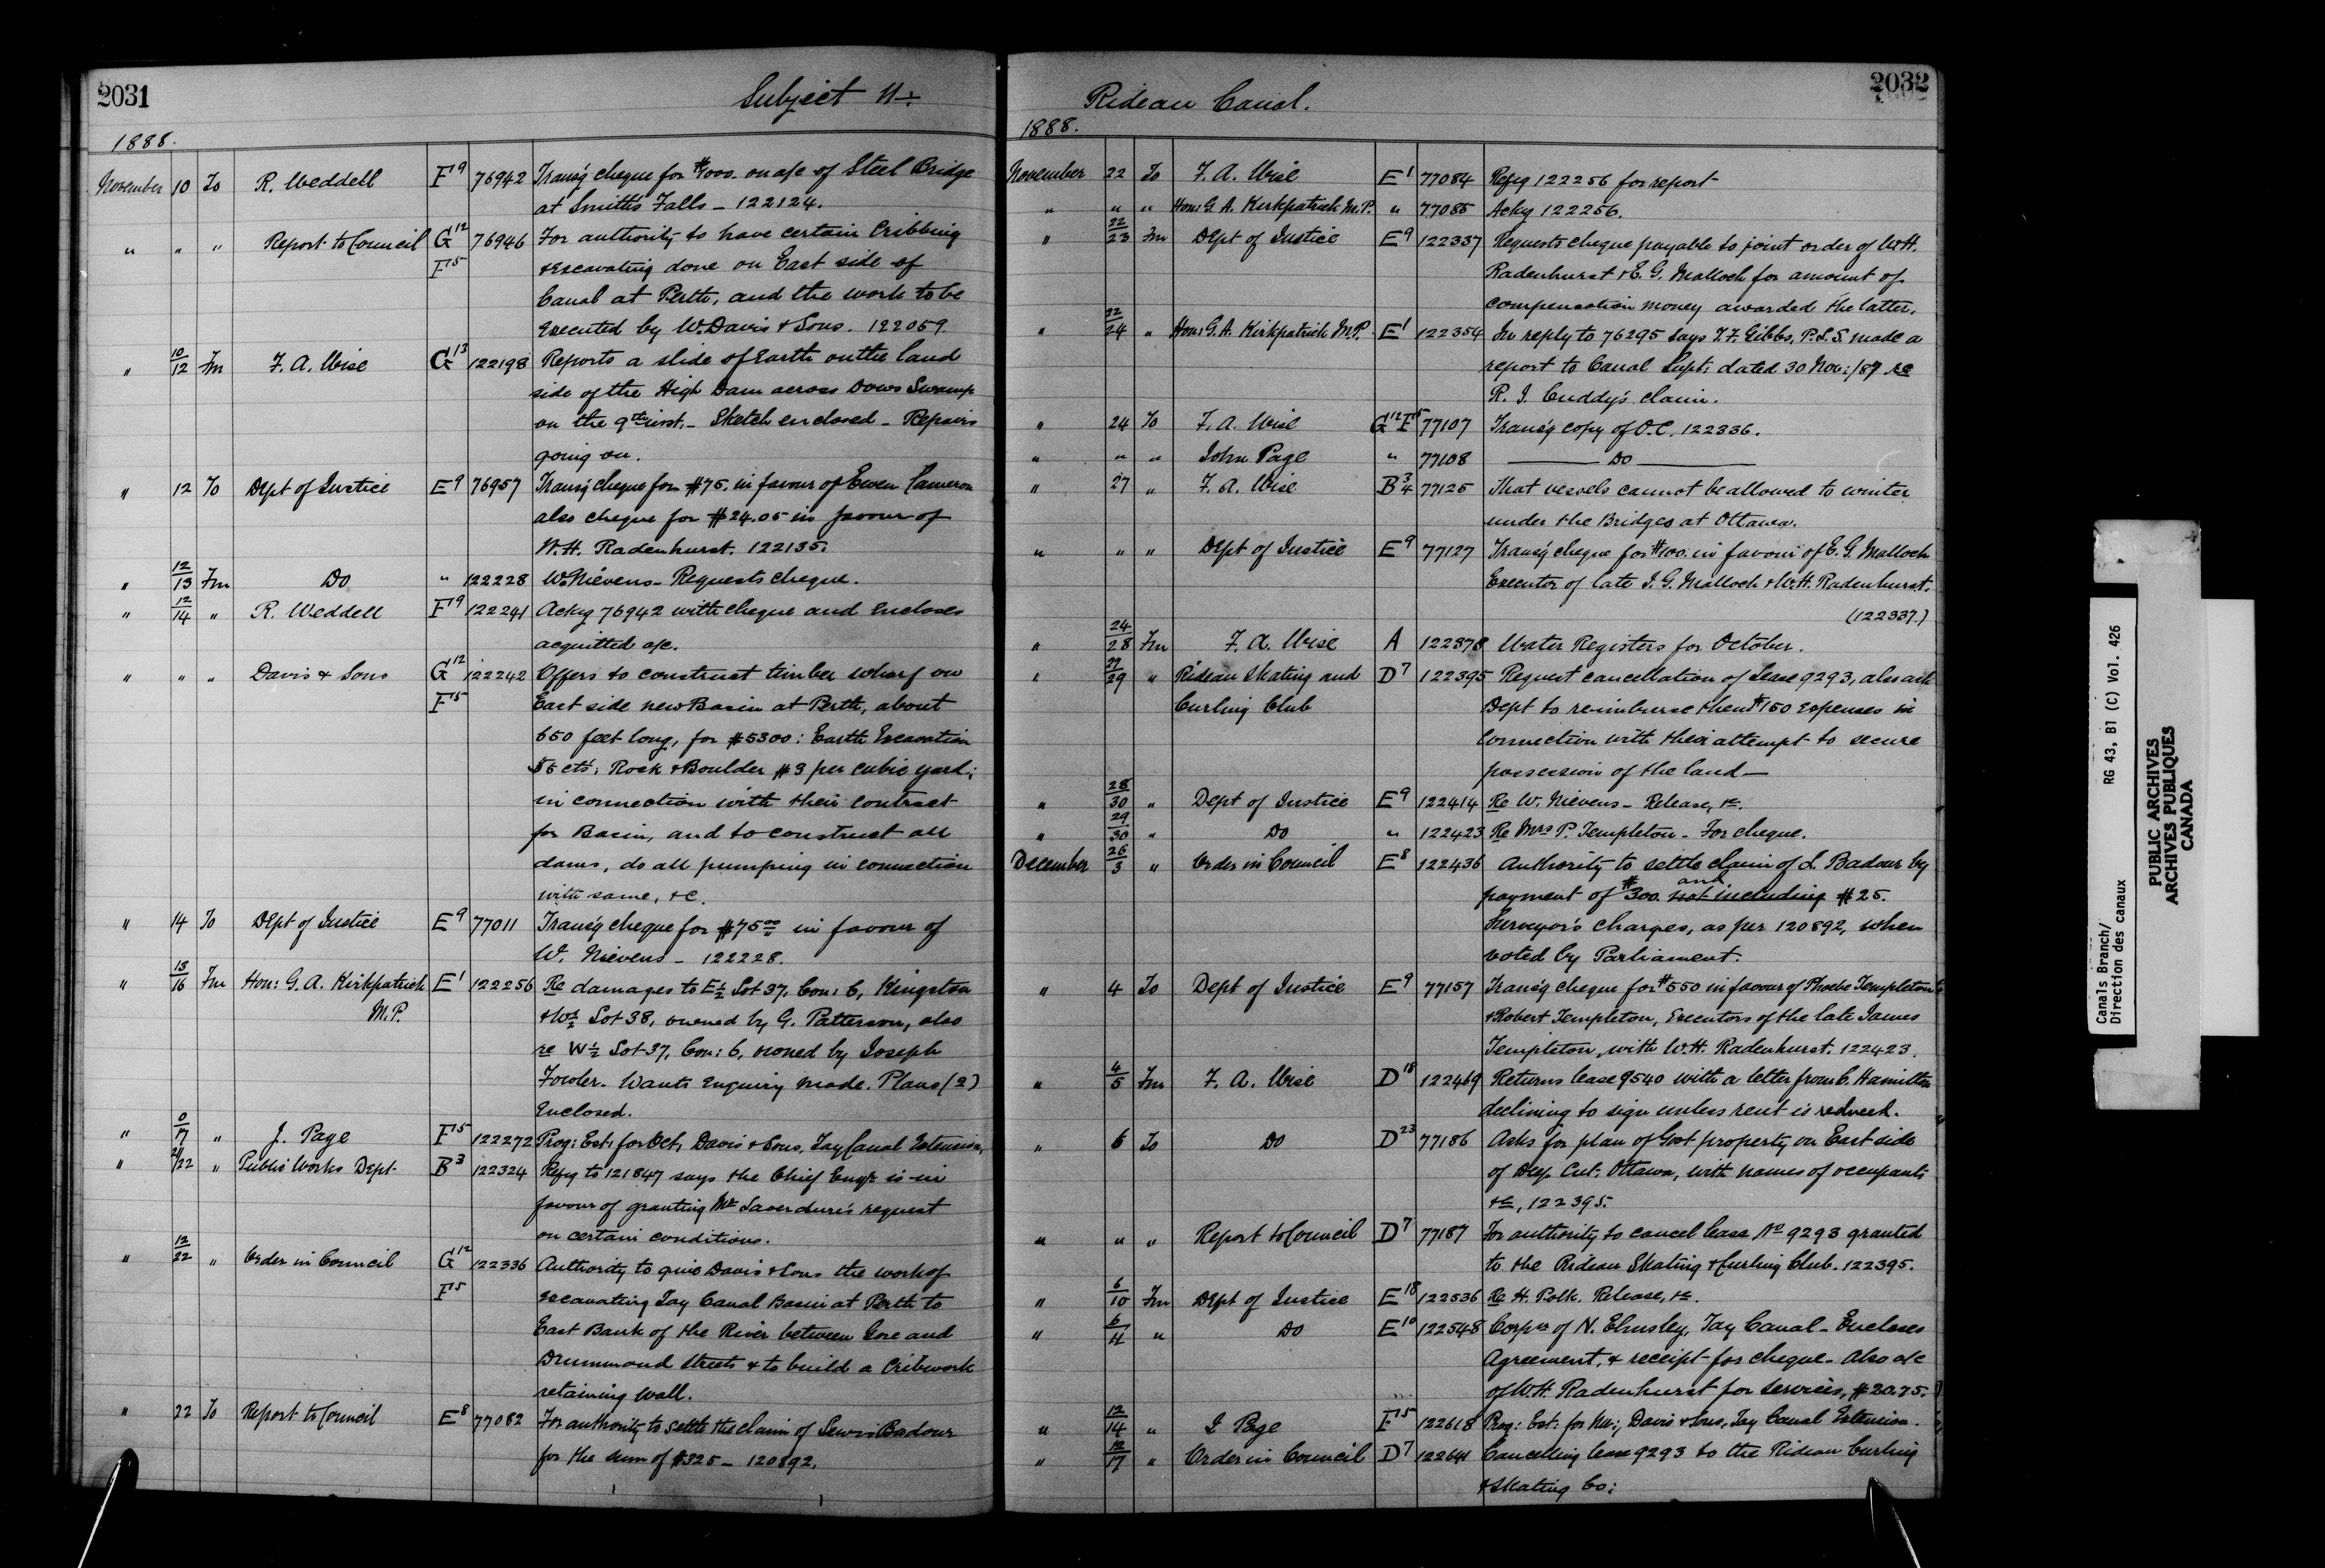 2031
Subject N÷
1888.
November 10 To R. Weddell F9 76942 Transg cheque for $7000. on a/c of Steel Bridge
at Smith's Falls — 122124.
" " " Report to Council G12 76946 For authority to have certain Cribbing
F15 & Excavating done on East side of
Canal at Perth, and the work to be
Executed by W. Davis & Sons. 122059
" 10/12 Fm F. A. Wise G13 122198 Reports a slide of Earth on the land
side of the High Dam across Dows Swamp
on the 9th inst. — Sketch enclosed — Repairs
going on.
" 12 To Dept of Justice E9 76957 Transg cheque for $75. in favour of Ewen Cameron
also cheque for $24.05 in favour of
W. H. Radenhurst. 122135.
" 12/13 Fm Do " 122228 W. Nievens — Requests cheque.
" 12/14 " R. Weddell F9 122241 Ackg 76942 with cheque and Encloses
acquitted a/c.
" " " Davis & Sons G12 122242 Offers to construct timber wharf on
F15 East side new Basin at Perth, about
650 feet long, for $5300: Earth Excavation
55 cts; Rock & Boulder $3 per cubic yard;
in connection with their contract
for Basin, and to construct all
dams, do all pumping in connection
with same, &c.
" 14 To Dept of Justice E9 77011 Transg cheque for $75.00 in favour of
W. Nievens — 122228.
" 13/16 Fm Hon: G. A. Kirkpatrick E1 122256 Re damages to E½ Lot 37, Con: 6, Kingston
M.P. & W½ Lot 38, owned by G. Patterson, also
re W½ Lot 37, Con: 6, owned by Joseph
Fowler. Wants Enquiry made. Plans (2)
Enclosed.
" 0/17 " J. Page F15 122272 Prog: Est: for Oct, Davis & Sons, Tay Canal Extension,
" 21/22 " Public Works Dept. B3 122324 Refg to 121847 says the Chief Engr is in
favour of granting Mr Laverdure's request
on certain conditions.
" 12/22 " Order in Council G12 122336 Authority to give Davis & Sons the work of
F15 excavating Tay Canal Basin at Perth to
East Bank of the River between Gore and
Drummond Streets & to build a Cribwork
retaining wall.
" 22 To Report to Council E8 77082 For authority to settle the claim of Lewis Badour
for the sum of $325 — 120892.
2032
Rideau Canal.
1888.
November 22 To F. A. Wise E1 77084 Refg 122256 for report
" " " Hon: G. A. Kirkpatrick M.P. " 77085 Ackg 122256.
" 22/23 Fm Dept of Justice E9 122337 Requests cheque payable to joint order of W.H.
Radenhurst & E. G. Malloch for amount of
compensation money awarded the latter.
" 22/24 " Hon: G. A. Kirkpatrick M.P. E1 122354 In reply to 76295 says T. F. Gibbs, P.L.S. made a
report to Canal Supt: dated 30 Nov:/87 re
R. J. Cuddy's claim.
" 24 To F. A. Wise G12 F15 77107 Transg copy of O.C. 122336.
" " " John Page " 77108 — Do —
" 27 " F. A. Wise B3/4 77125 That vessels cannot be allowed to winter
under the Bridges at Ottawa.
" " " Dept of Justice E9 77127 Transg cheque for $100. in favour of E. G. Malloch
Executor of late J. G. Malloch & W.H. Radenhurst.
(122337.)
" 24/28 Fm F. A. Wise A 122378 Water Registers for October.
" 27/29 " Rideau Skating and D7 122395 Request cancellation of Lease 9293, also ask
Curling Club Dept to reimburse them $150 expenses in
connection with their attempt to secure
possession of the land —
" 28/30 " Dept of Justice E9 122414 Re W. Nievens — Release, &c.
" 29/30 " Do " 122423 Re Mrs P. Templeton — For cheque.
December 26/3 " Order in Council E8 122436 Authority to settle claim of L. Badour by
payment of $300. not including and $25.
Surveyor's charges, as per 120892, when
voted by Parliament.
" 4 To Dept of Justice E9 77157 Transg cheque for $550 in favour of Phoebe Templeton
& Robert Templeton, Executors of the late James
Templeton, with W.H. Radenhurst. 122423.
" 4/5 Fm F. A. Wise D18 122469 Returns lease 9540 with a letter from C. Hamilton
declining to sign unless rent is reduced.
" 6 To Do D23 77186 Asks for plan of Govt property on East side
of Deep Cut: Ottawa, with names of occupants
&c, 122395.
" " " Report to Council D7 77187 For authority to cancel lease No 9293 granted
to the Rideau Skating & Curling Club. 122395.
" 6/10 Fm Dept of Justice E18 122536 Re H. Polk. Release, &c.
" 6/11 " Do E10 122548 Corpce of N. Elmsley, Tay Canal — Encloses
Agreement, & receipt for cheque. Also a/c
of W.H. Radenhurst for services, $20.75.
" 12/14 " J Page F15 122618 Prog: Est: for Nov:, Davis & Sons, Tay Canal Extension.
" 12/17 " Order in Council D7 122641 Cancelling lease 9293 to the Rideau Curling
& Skating Co:
Canals Branch/ RG 43, B1 (C) Vol. 426
Direction des canaux
PUBLIC ARCHIVES
ARCHIVES PUBLIQUES
CANADA